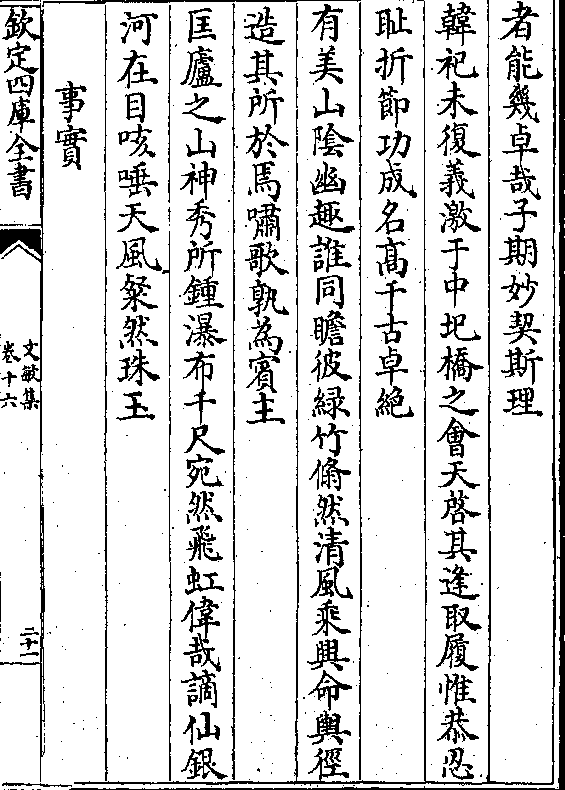 者能幾卓哉子期妙契斯理
韓祀未復義激于中圯橋之會天啓其逢取履惟恭忍
耻折節功成名髙千古卓絶
有美山陰幽趣誰同瞻彼緑竹翛然清風乘興命輿徑
造其所於焉嘯歌孰為賓主
匡廬之山神秀所鍾瀑布千尺宛然飛虹偉哉謫仙銀
河在目咳唾天風粲然珠玉
事實
欽定四庫全書
文敏集
卷十六
二十一